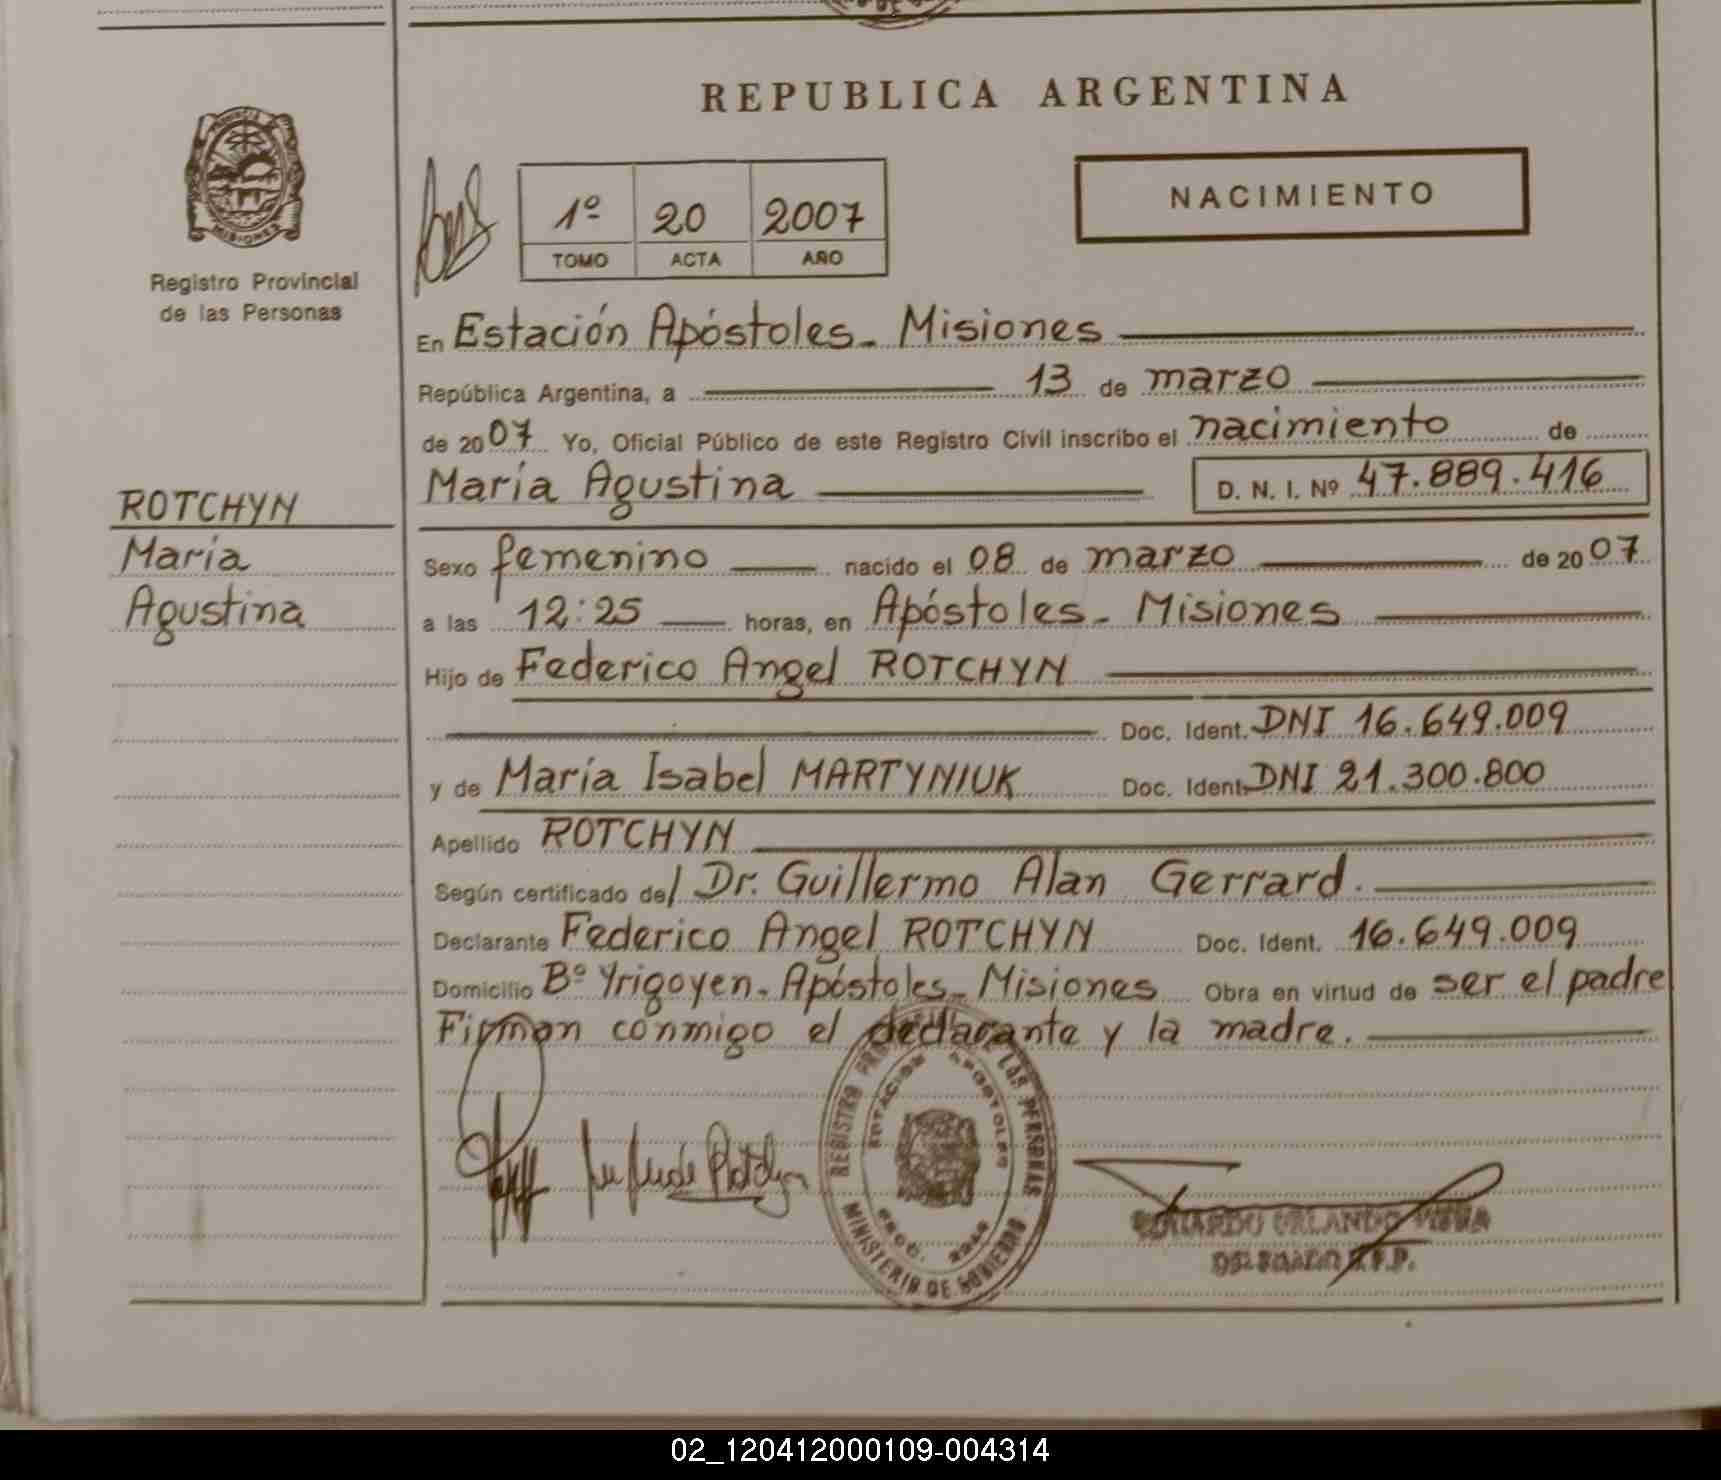 REPUBLICA ARGENTINA
PROVINCIA DE
MISIONES
Registro Provincial
de las Personas
1º 20 2007
TOMO ACTA AÑO
NACIMIENTO
En Estación Apóstoles - Misiones
República Argentina, a 13 de marzo
de 2007 Yo, Oficial Público de este Registro Civil inscribo el nacimiento de
María Agustina D. N. I. Nº 47.889.416
ROTCHYN
María
Agustina
Sexo femenino nacido el 08 de marzo de 2007
a las 12:25 horas, en Apóstoles - Misiones
Hijo de Federico Angel ROTCHYN
Doc. Ident. DNI 16.649.009
y de María Isabel MARTYNIUK Doc. Ident. DNI 21.300.800
Apellido ROTCHYN
Según certificado del Dr. Guillermo Alan Gerrard.
Declarante Federico Angel ROTCHYN Doc. Ident. 16.649.009
Domicilio Bº Yrigoyen - Apóstoles - Misiones Obra en virtud de ser el padre
Firman conmigo el declarante y la madre.
REGISTRO PROVINCIAL DE LAS PERSONAS
ESTACION APOSTOLES
MINISTERIO DE GOBIERNO
EDUARDO ORLANDO
DELEGADO R.P.P.
02_120412000109-004314